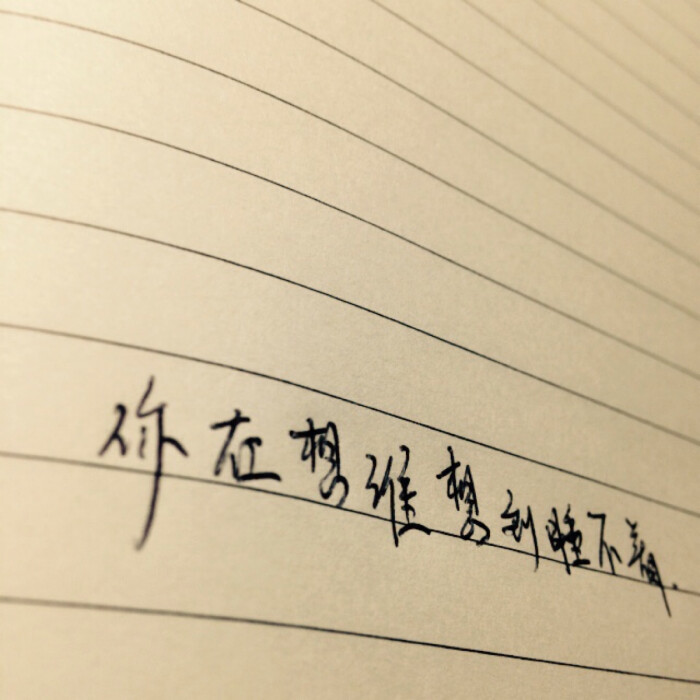 你在想谁想到睡不着.